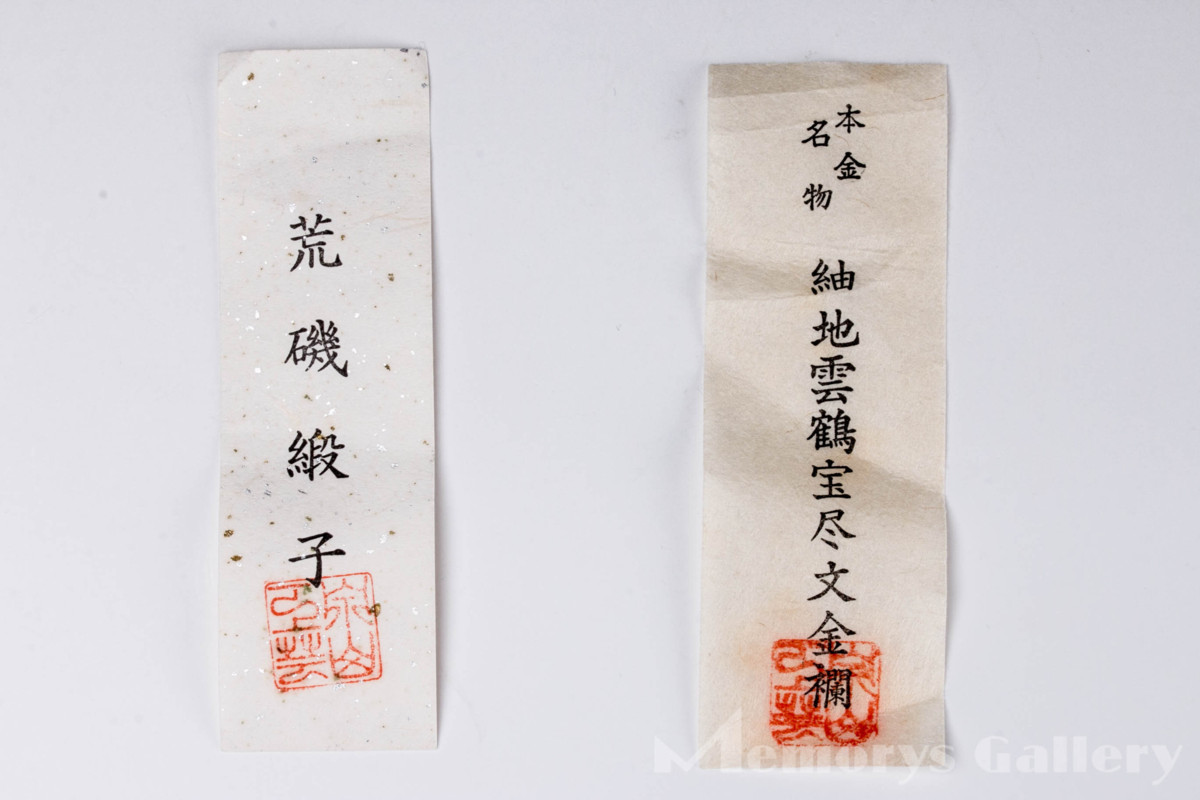 荒磯緞子
本金
名物
紬地雲鶴宝尽文金襴
Memorys Gallery